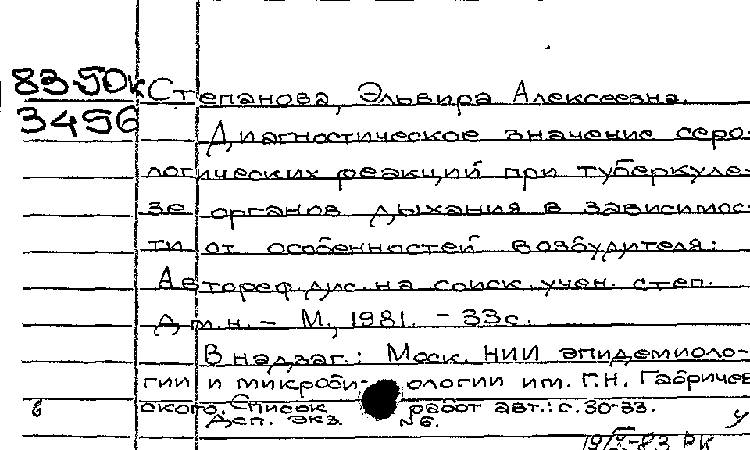 83-50к
3456
Степанова, Эльвира Алексеевна.
Диагностическое значение серо-
логических реакций при туберкуле-
зе органов дыхания в зависимос-
ти от особенностей возбудителя:
Автореф. дис. на соиск. учен. степ.
д.м.н. - М., 1981. - 33с.
В надзаг.: Моск. НИИ эпидемиоло-
гии и микроби- ологии им. Г.Н. Габричев
ского. Список работ авт.: с. 30-33.
Деп. экз. №6.